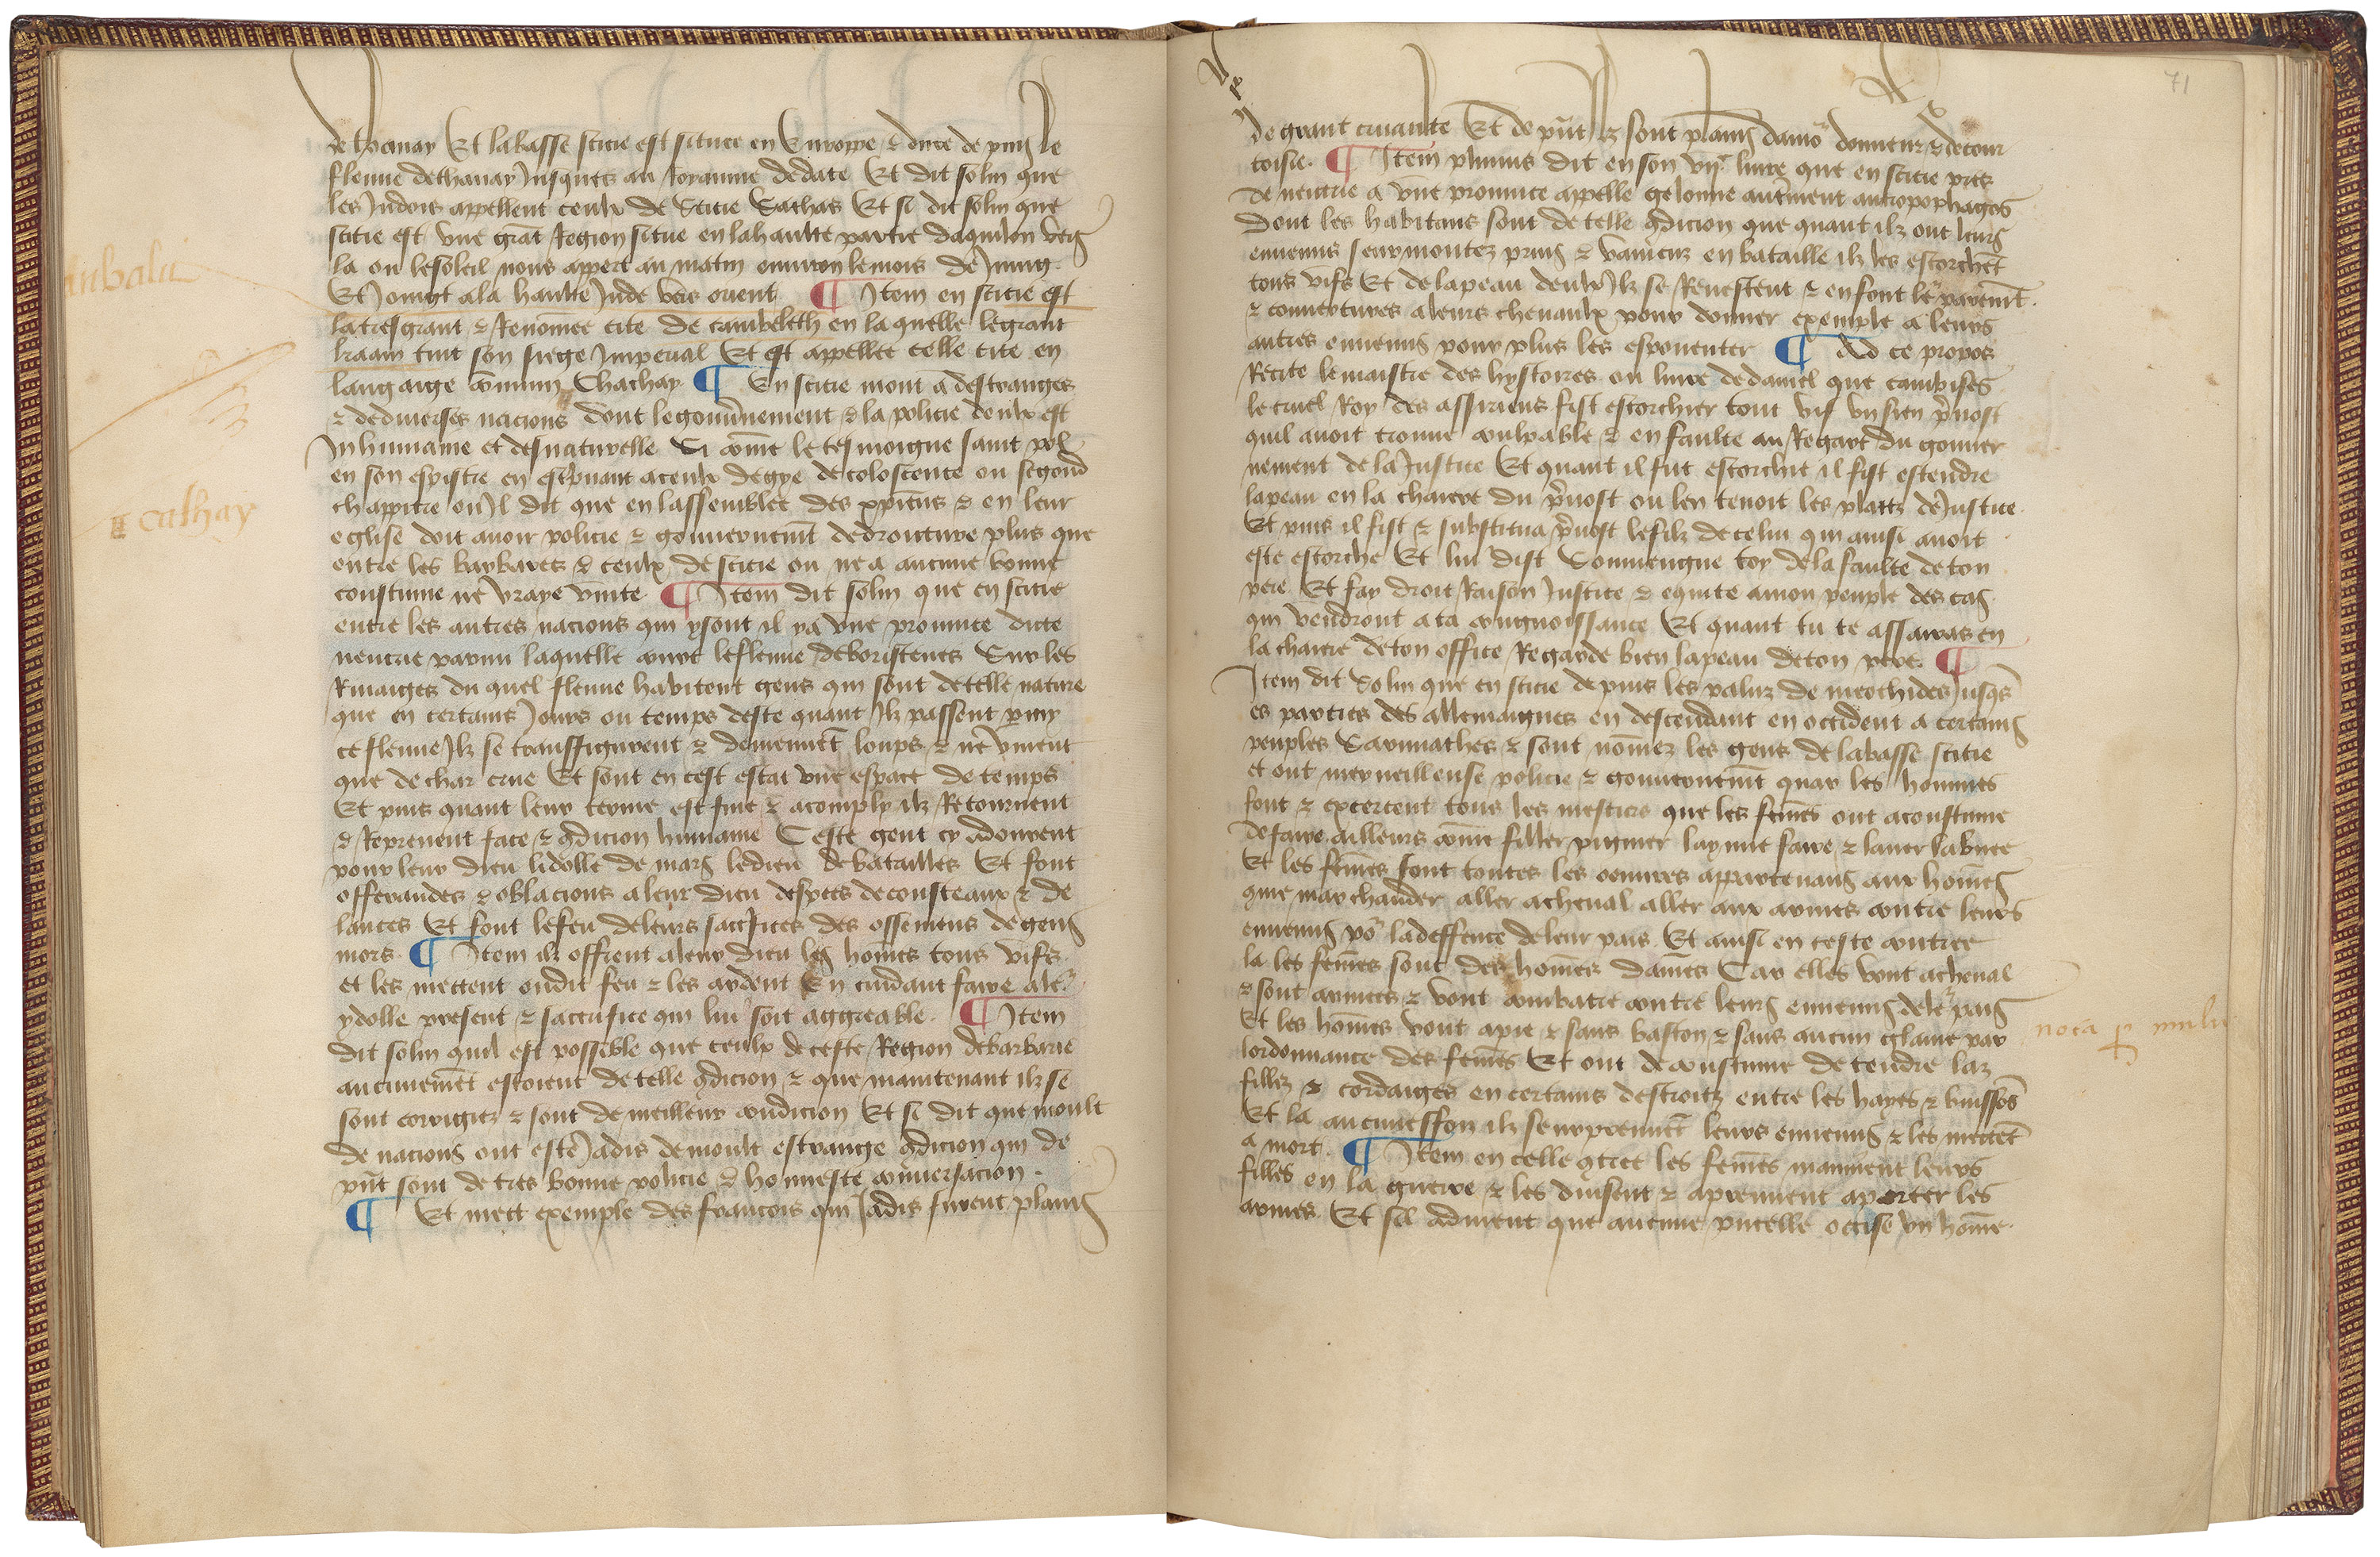 de thanay Et labasse sticie est situee en Europpe & dure de puis le
fleuue dethanay Jusques au Royaume dedace Et dit solin que
les Judois appellent ceulx de Sticie Sachas Et si dit solin que
sticie est vne grāt Region situe en lahaulte partie daquilon vers
la ou lesoleil nous appert au matin enuiron lemois de Juing
Et Joingt ala haulte Jnde vers orient ¶ Jtem en sticie est
latresgrant & Renōmee cite de cambeleth en la quelle legrant
kaam tint son siege Jmperial Et est appellee celle cite en
langaige cōmun Chachay ¶ En sticie mont a destranges
& dediuerses nacions dont legouu̾nement & la policie deulx est
Jnhumaine et desnaturelle Si cōme le tesmoigne saint pol
en son espistre en escripuant aceulx degye de coloscence ou segond
chappitre ou Jl dit que en lassemblee des xp̄iens & en leur
eglise doit auoir policie & gouuernemt̄ dedroicture plus que
entre les barbares & ceulx de sticie ou ne a aucune bonne
coustume ne vraye vnite ¶ Jtem dit solin que en sticie
entre les autres nacions qui ysont il ya vne prouince dicte
neutrie parmi laquelle court lefleuue deboristenes Sur les
Riuaiges du quel fleuue habitent gens qui sont detelle nature
que en certains Jours ou temps deste quant Jlz passent p̱my
ce fleuue Jlz se transfigurent & deuiennēt loups & ne viuent
que de char crue Et sont en cest estat vne espace de temps
Et puis quant leur terme est fine & acomply ilz Retournent
& Reprenent face & 9dicion humaine Ceste gent cy adourent
pour leur dieu lidolle de mars ledieu debatailles Et font
offerandes & oblacions aleur dieu despees decousteaux & de
lances Et font lefeu deleurs sacrifices des ossemens degens
mors ¶ Jtem ilz offrent aleur dieu les hōmes tous vifs
et les mettent oudit feu & les ardent En cuidant faire ale2
ydolle present & sacrifice qui lui soit aggreable ¶ Jtem
dit solin quil est possible que ceulx de ceste Region debarbarie
anciennemēt estoient de telle 9dicion & que maintenant ilz se
sont corrigiez & sont de meilleur condicion Et si dit que moult
de nacions ont este Jadis de moult estrange 9dicion qui de
pn̄t sont de tres bonne policie & honneste conuersacion
¶ Et mect exemple des francois qui Jadis furent plains
anbalu
cathay
71
de grant cruaulte Et de pn̄t Jlz sont plains damo2 donneur & decour
toisie ¶ Jtem plinius dit en son vijᵉ liure que en sticie pres
de neutrie a vne prouince apelle gelonne autremēt antropophages
Dont les habitans sont de telle 9dicion que quant ilz ont leurs
ennemis seurmontez prins & vaincuz en bataille ilz les escorchēt
tous vifs Et de lapeau deulx Jlz se Reuestent & en font le2 paremt̄
& couuertures aleurs cheuaulx pour donner exemple a leurs
autres ennemis pour plus les espouenter ¶ Ad ce propos
Recite lemaistre des hystoires ou liure dedaniel que cambises
le cruel Roy des assiriens fist escorchier tout vif vn sien p̄uost
quil auoit trouue coulpable & en faulte au Regart du gouuer
nement de la Justice Et quant il fut escorchie il fist estendre
lapeau en la chaiere du p̄uost ou len tenoit les plaitz de Justice
Et puis il fist & substitua p̄uost lefilz de celui qui ainsi auoit
este escorche Et lui dist Souuiengne toy dela faulte de ton
pere Et fay droit Raison Justice & equite amon peuple des cas
qui vendront a ta congnoissance Et quant tu te asserras en
la chaiere deton office Regarde bien lapeau deton pere ¶
Jtem dit Solin que en sticie de puis les paluz de meothides Jusq̄s
es parties des allemaignes en descendant en occident a certains
peuples Sarmathes & sont nōmez les gens de labasse sticie
et ont merueilleuse policie & gouuernemt̄ quar les hommes
font & excercent tous les mestiers que les fēmes ont acoustume
defaire ailleurs cōme filler pigner laynne faire & lauer labuee
Et les fēmes font toutes les oeuures appartenans aux hōmes
9me marchander aller acheual aller aux armes contre leurs
ennemis po2 ladeffence deleur pais Et ainsi en ceste contree
la les fēmes sont des hōmes dames Car elles vont acheual
& sont armees & vont combatre contre leurs ennemis dele2 pais
Et les hōmes vont apie & sans baston & sans aucun glaiue par
lordonnance des fēmes Et ont de coustume de tendre laz
fillez & cordaiges en certains destroitz entre les hayes & buissōs
Et la aucuneffoiz ilz seurprennēt leurs ennemis & les mettēt
a mort ¶ Jtem en celle 9tree les fēmes mainnent leurs
filles en la guerre & les duisent & aprennent aporter les
armes Et sil aduient que aucune pucelle occise vn hōme
nota p̱ mulie